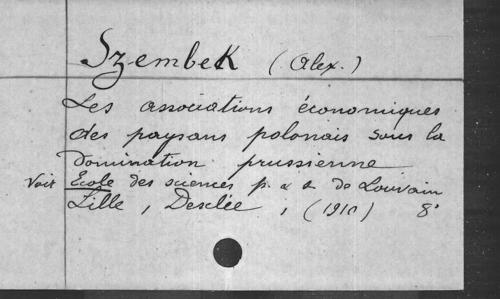 Szembek (Alex.)
Les associations économiques
des paysans polonais sous la
domination prussienne
Voir Ecole des sciences p. & s. de Louvain
Lille, Desclée, (1910) 8°